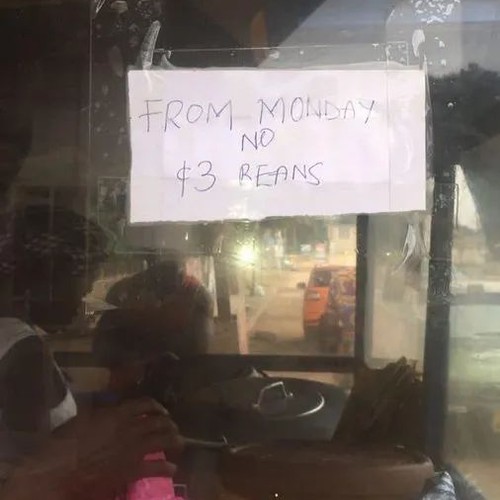 FROM MONDAY
NO
¢3 BEANS